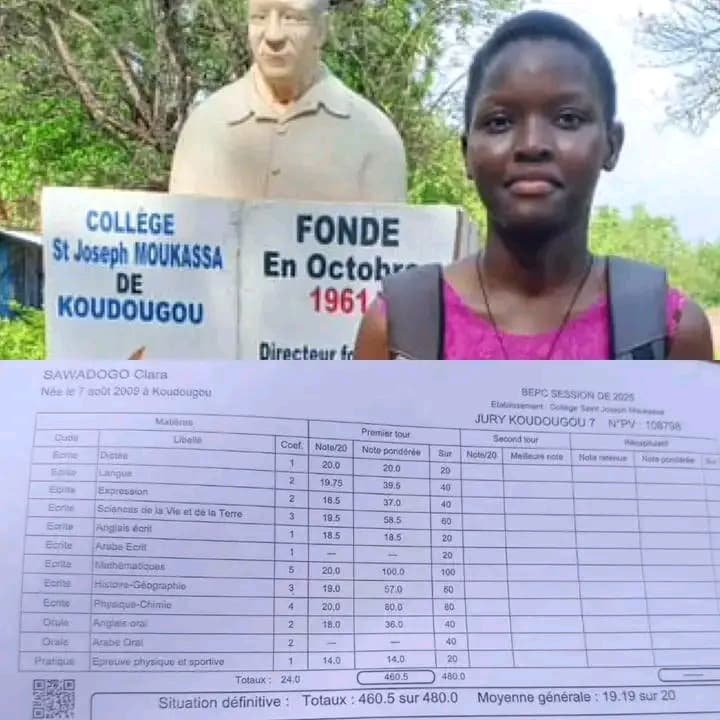 COLLÈGE
St Joseph MOUKASSA
DE
KOUDOUGOU
FONDE
En Octobre
1961
Directeur fo
SAWADOGO Clara
Née le 7 août 2009 à Koudougou
BEPC SESSION DE 2025
Etablissement : Collège Saint Joseph Moukassa
JURY KOUDOUGOU 7 N°PV : 108798
Matières Premier tour Second tour Récapitulatif
Libellé Coef. Note/20 Note pondérée Sur Note/20 Meilleure note Note retenue Note pondérée Sur
Ecrite Dictée 1 20.0 20.0 20
Ecrite Langue 2 19.75 39.5 40
Ecrite Expression 2 18.5 37.0 40
Ecrite Sciences de la Vie et de la Terre 3 19.5 58.5 60
Ecrite Anglais écrit 1 18.5 18.5 20
Ecrite Arabe Ecrit 1 — — 20
Ecrite Mathématiques 5 20.0 100.0 100
Ecrite Histoire-Géographie 3 19.0 57.0 60
Ecrite Physique-Chimie 4 20.0 80.0 80
Orale Anglais oral 2 18.0 36.0 40
Orale Arabe Oral 2 — — 40
Pratique Epreuve physique et sportive 1 14.0 14.0 20
Totaux : 24.0 460.5 480.0
Situation définitive : Totaux : 460.5 sur 480.0 Moyenne générale : 19.19 sur 20